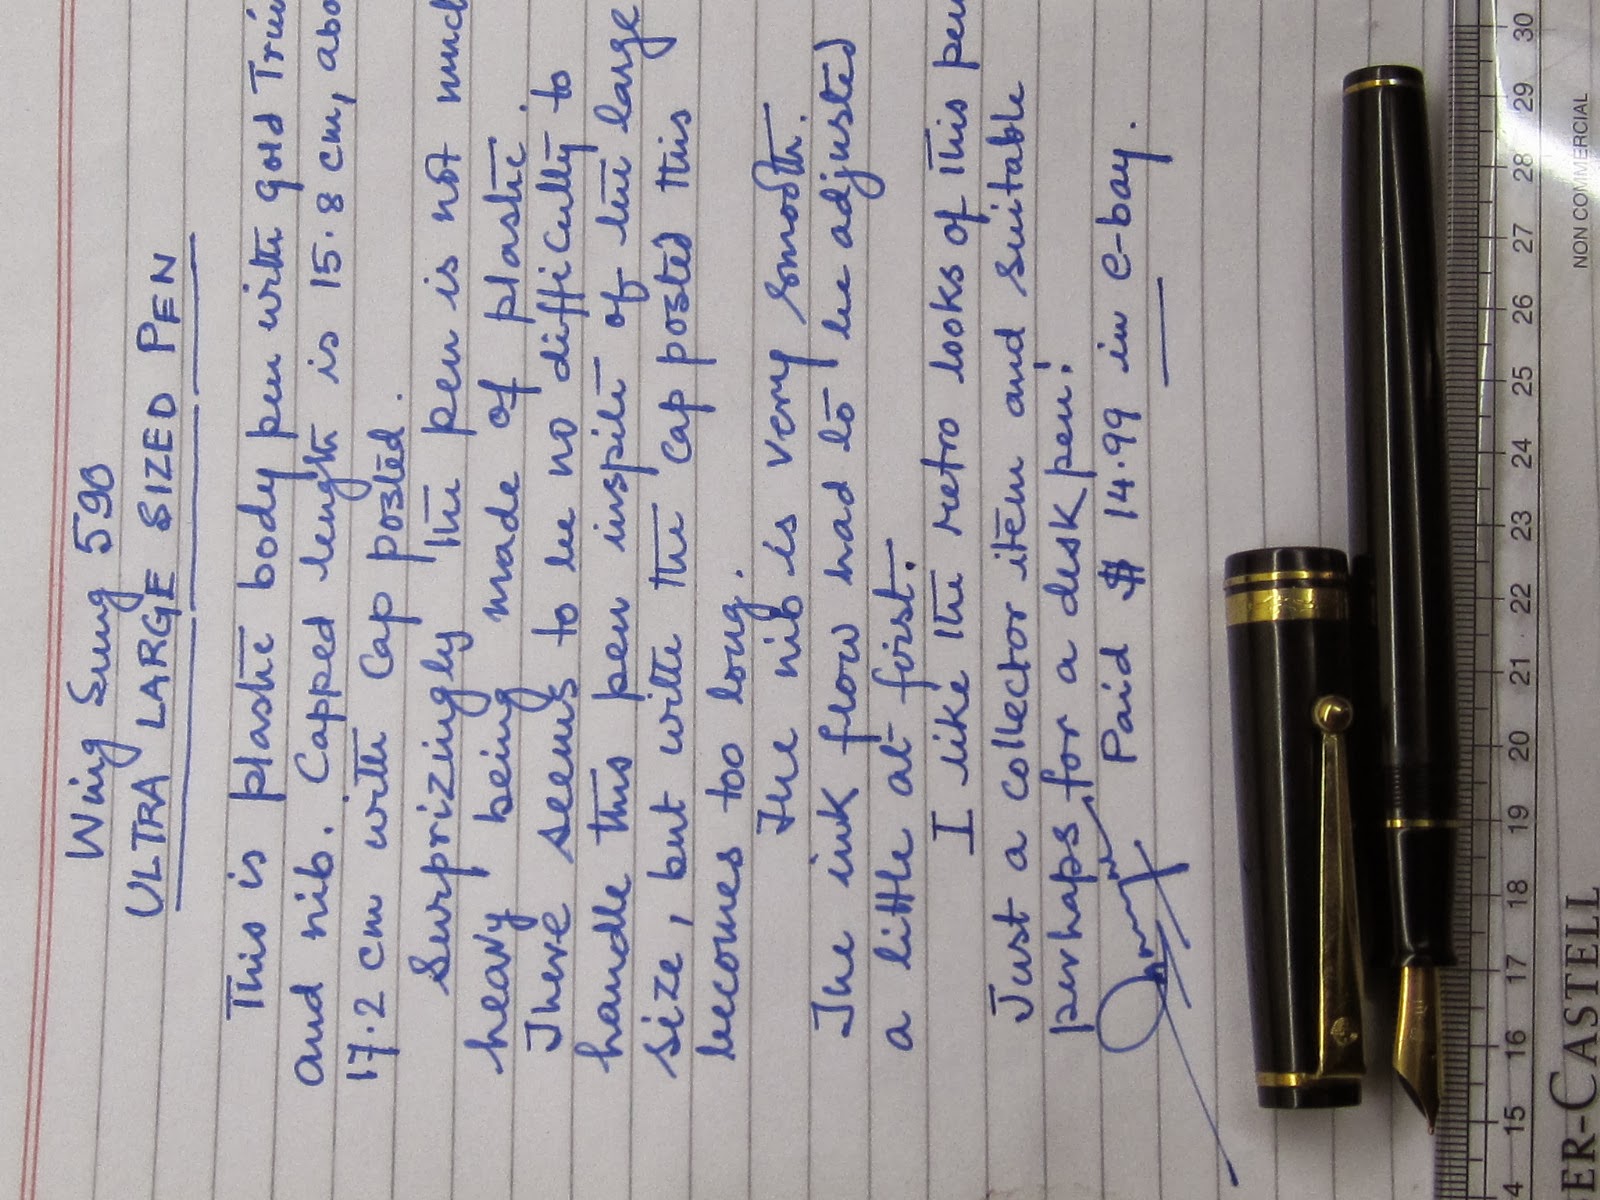 Wing Sung 590
ULTRA LARGE SIZED PEN
This is plastic body pen with gold Trim
and nib. Capped length is 15.8 cm, abo
17.2 cm with Cap posted.
Surprizingly the pen is not much
heavy being made of plastic.
There seems to be no difficulty to
handle this pen inspite of the large
size, but with the cap posted this
becomes too long.
The nib is very smooth.
The ink flow had to be adjusted
a little at first.
I like the retro looks of this pen
Just a collector item and suitable
perhaps for a desk pen.
Paid $ 14.99 in e-bay.
4 15 16 17 18 19 20 21 22 23 24 25 26 27 28 29 30
ER-CASTELL
NON COMMERCIAL